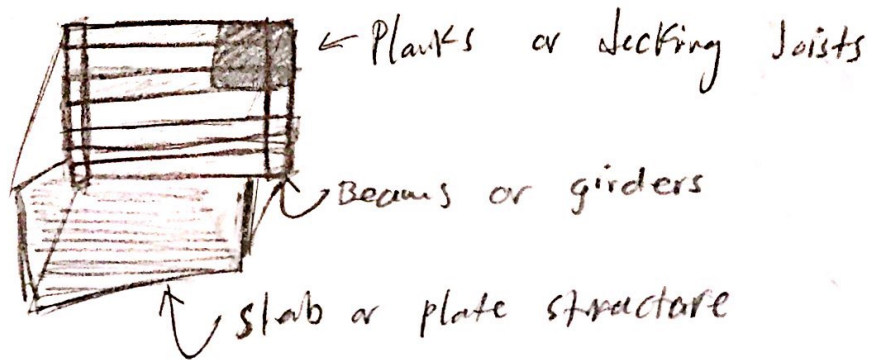 Planks or decking Joists
Beams or girders
slab or plate structure